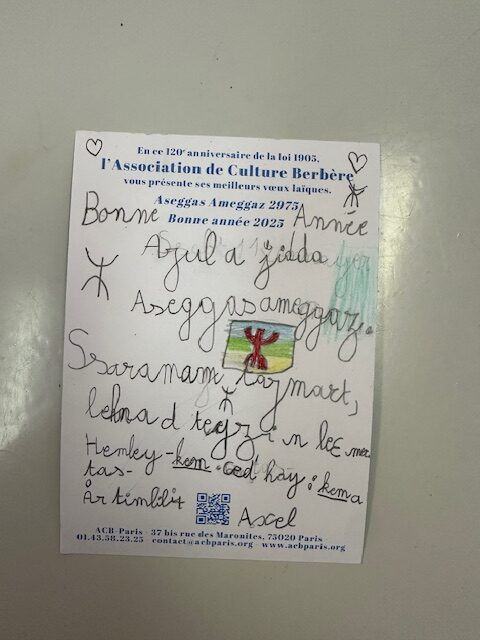 En ce 120e anniversaire de la loi 1905,
l'Association de Culture Berbère
vous présente ses meilleurs vœux laïques.
Aseggas Ameggaz 2975
Bonne année 2025
Bonne Année
Azul a jidda
Aseggas ameggaz.
Ssaramaɣ tazmart,
lehna d teɣzi n leɛmer
Hemleɣ-kem
tas-
Ar timlilit
Axel
ACB-Paris - 37 bis rue des Maronites, 75020 Paris
01.43.58.23.25 - contact@acbparis.org - www.acbparis.org